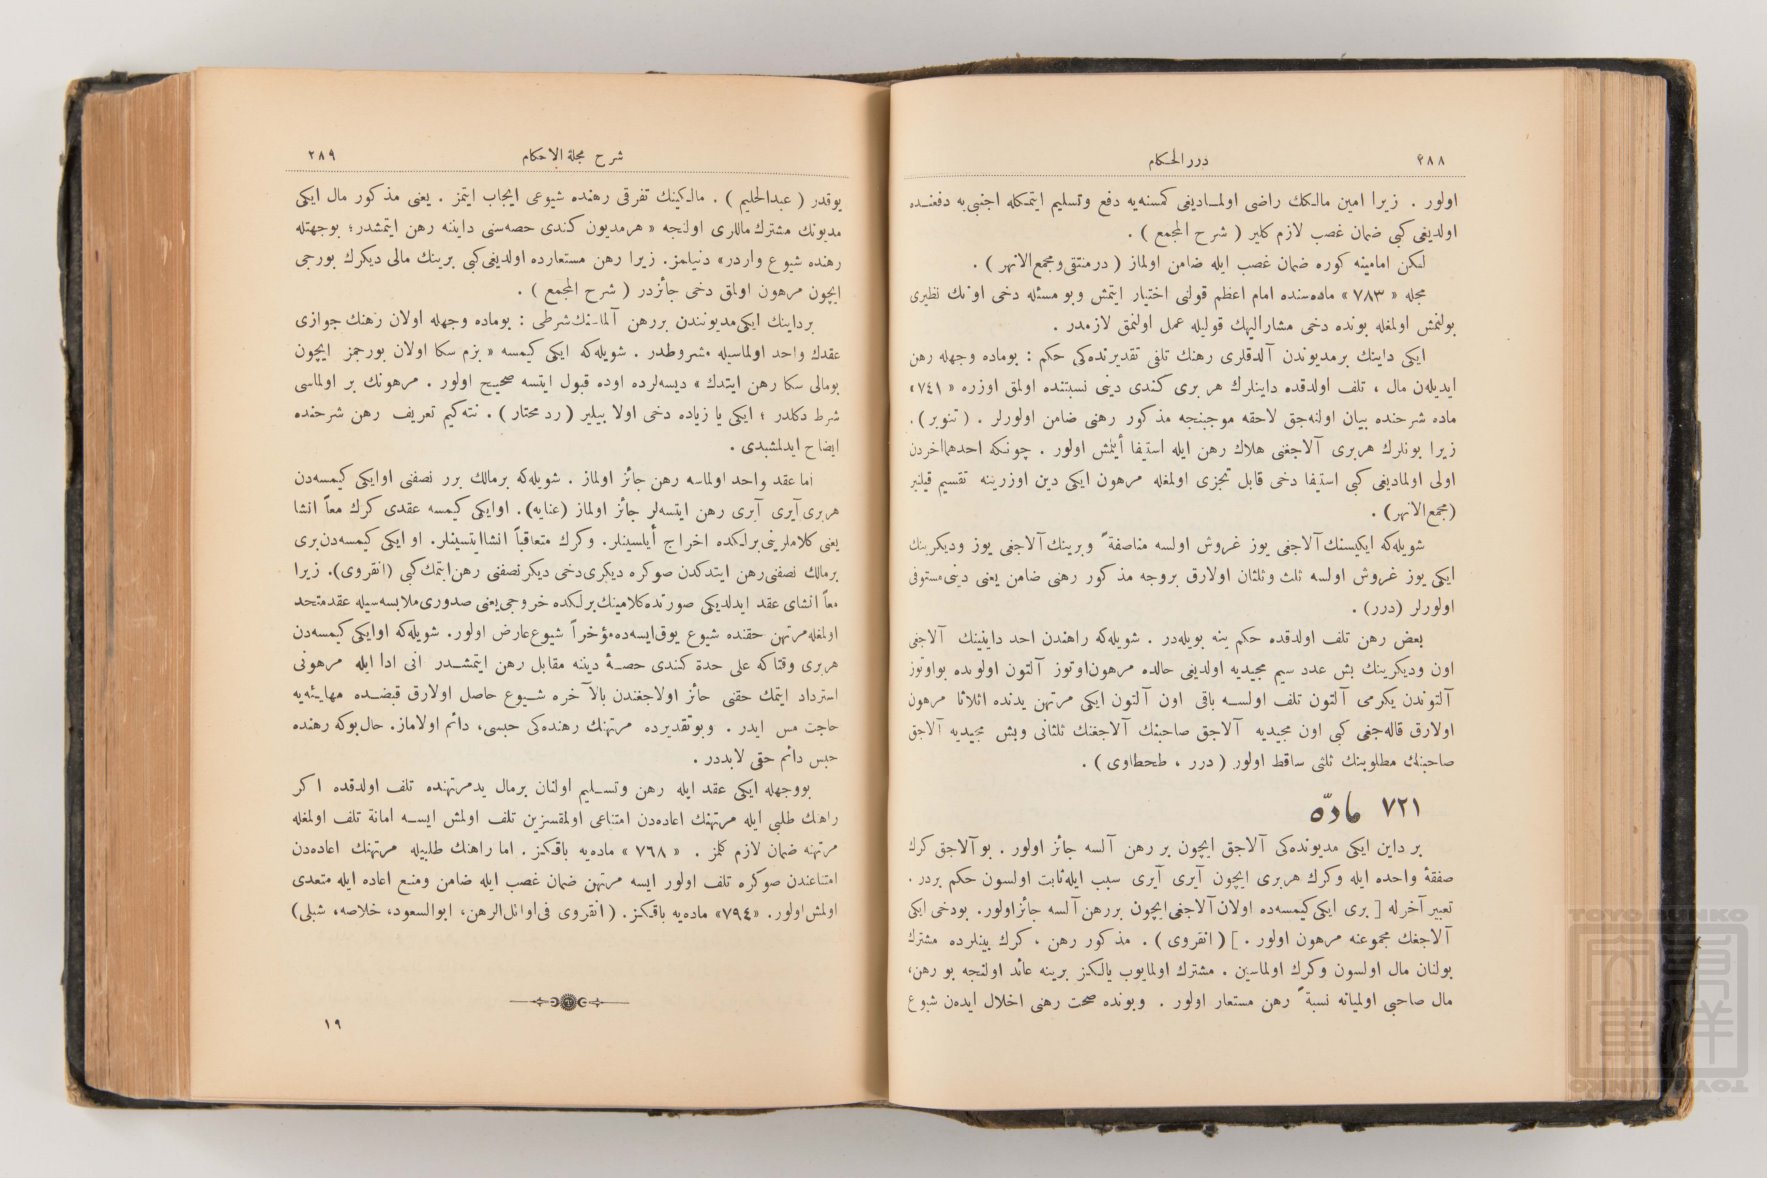 ٢٨٨
درر الحكام
اولور . زيرا امين مالكك راضى اولماديغى كمسنه‌يه دفع وتسليم ايتمكله اجنبى‌يه دفعنده
اولديغى كبى ضمان غصب لازم كلير ( شرح المجمع ) .
لكن امامينه كوره ضمان غصب ايله ضامن اولماز ( در منتقى ومجمع الانهر ) .
مجله « ٧٨٣ » ماده‌سنده امام اعظم قولنى اختيار ايتمش وبو مسئله دخى اونك نظيرى
بولنمش اولمغله بونده دخى مشاراليهك قوليله عمل اولنمق لازمدر .
ايكى داينك بر مديوندن آلدقلرى رهنك تلفى تقديرنده‌كى حكم : بوماده وجهله رهن
ايديلن مال ، تلف اولدقده داينلرك هر برى كندى دينى نسبتنده اولمق اوزره « ٧٤١ »
ماده شرحنده بيان اولنه‌جق لاحقه موجبنجه مذكور رهنى ضامن اولورلر . ( تنوير ) .
زيرا بونلرك هربرى آلاجغنى هلاك رهن ايله استيفا أيتمش اولور . چونكه احدهما اخردن
اولى اولماديغى كبى استيفا دخى قابل تجزى اولمغله مرهون ايكى دين اوزرينه تقسيم قيلنير
(مجمع الانهر) .
شويله‌كه ايكيسنك آلاجغى يوز غروش اولسه مناصفةً وبرينك آلاجغى يوز وديكرينك
ايكى يوز غروش اولسه ثلث وثلثان اولارق بروجه مذكور رهنى ضامن يعنى دينى مستوفى
اولورلر (درر) .
بعض رهن تلف اولدقده حكم ينه بويله‌در . شويله‌كه راهندن احد داينينك آلاجغى
اون وديكرينك بش عدد سيم مجيديه اولديغى حالده مرهون اوتوز آلتون اولوبده بو اوتوز
آلتوندن يكرمى آلتون تلف اولسه باقى اون آلتون ايكى مرتهن يدنده اثلاثا مرهون
اولارق قاله‌جغى كبى اون مجيديه آلاجق صاحبنك آلاجغنك ثلثانى وبش مجيديه آلاجق
صاحبنك مطلوبنك ثلثى ساقط اولور ( درر ، طحطاوى ) .
٧٢١ مادّه
بر داين ايكى مديونده‌كى آلاجق ايچون بر رهن آلسه جائز اولور . بو آلاجق كرك
صفقهٔ واحده ايله وكرك هربرى ايچون آيرى آيرى سبب ايله ثابت اولسون حكم بردر .
تعبير آخرله [ برى ايكى كيمسه‌ده اولان آلاجغى ايچون بررهن آلسه جائز اولور. بو دخى ايكى
آلاجغك مجموعنه مرهون اولور . ] ( انقروى ) . مذكور رهن ، كرك بينلرده مشترك
بولنان مال اولسون وكرك اولماسين . مشترك اولمايوب يالكز برينه عائد اولنجه بو رهن،
مال صاحبى اولميانه نسبةً رهن مستعار اولور . وبونده صحت رهنى اخلال ايدن شيوع
شرح مجلة الاحكام
٢٨٩
يوقدر ( عبدالحليم ) . مالكينك تفرقى رهنده شيوعى ايجاب ايتمز . يعنى مذكور مال ايكى
مديونك مشترك ماللرى اولنجه « هر مديون كندى حصه‌سنى دايننه رهن ايتمشدر؛ بوجهتله
رهنده شيوع واردر» دنيلمز. زيرا رهن مستعارده اولديغى كبى برينك مالى ديكرك بورجى
ايچون مرهون اولمق دخى جائزدر ( شرح المجمع ) .
برداينك ايكى مديونندن بررهن آلماسنك شرطى : بوماده وجهله اولان رهنك جوازى
عقدك واحد اولماسيله مشروطدر . شويله‌كه ايكى كيمسه « بزم سكا اولان بورجمز ايچون
بومالى سكا رهن ايتدك » ديسه‌لرده اوده قبول ايتسه صحيح اولور . مرهونك بر اولماسى
شرط دكلدر ؛ ايكى يا زياده دخى اولا بيلير ( رد محتار ) . نته‌كيم تعريف رهن شرحنده
ايضاح ايدلمشيدى .
اما عقد واحد اولماسه رهن جائز اولماز . شويله‌كه برمالك برر نصفنى او ايكى كيمسه‌دن
هربرى آيرى آيرى رهن ايتسه‌لر جائز اولماز (عنايه) . او ايكى كيمسه عقدى كرك معاً انشا
يعنى كلاملرينى برلكده اخراج أيلسينلر. وكرك متعاقباً انشا ايتسينلر. او ايكى كيمسه‌دن برى
برمالك نصفنى رهن ايتدكدن صوكره ديكرى دخى ديكر نصفنى رهن ايتمك كبى (انقروى). زيرا
معاً انشاى عقد ايدلديكى صورتده كلامينك برلكده خروجى يعنى صدورى ملابسه‌سيله عقد متحد
اولمغله مرتهن حقنده شيوع يوق ايسه‌ده مؤخراً شيوع عارض اولور. شويله‌كه او ايكى كيمسه‌دن
هربرى وقتاكه على حدة كندى حصهٔ ديننه مقابل رهن ايتمشدر انى ادا ايله مرهونى
استرداد ايتمك حقنى حائز اولاجغندن بالآخره شيوع حاصل اولارق قبضده مهايئه‌يه
حاجت مس ايدر . وبو تقديرده مرتهنك رهنده‌كى حبسى، دائم اولاماز. حال بوكه رهنده
حبس دائم حقى لابددر .
بووجهله ايكى عقد ايله رهن وتسليم اولنان برمال يد مرتهنده تلف اولدقده اكر
راهنك طلبى ايله مرتهنك اعاده‌دن امتناعى اولمقسزين تلف اولمش ايسه امانة تلف اولمغله
مرتهنه ضمان لازم كلمز . « ٧٦٨ » ماده‌يه باقكز . اما راهنك طلبيله مرتهنك اعاده‌دن
امتناعندن صوكره تلف اولور ايسه مرتهن ضمان غصب ايله ضامن ومنع اعاده ايله متعدى
اولمش اولور. «٧٩٤» ماده‌يه باقكز. ( انقروى فى اوائل الرهن، ابوالسعود، خلاصه، شبلى)
١٩
TOYO BUNKO